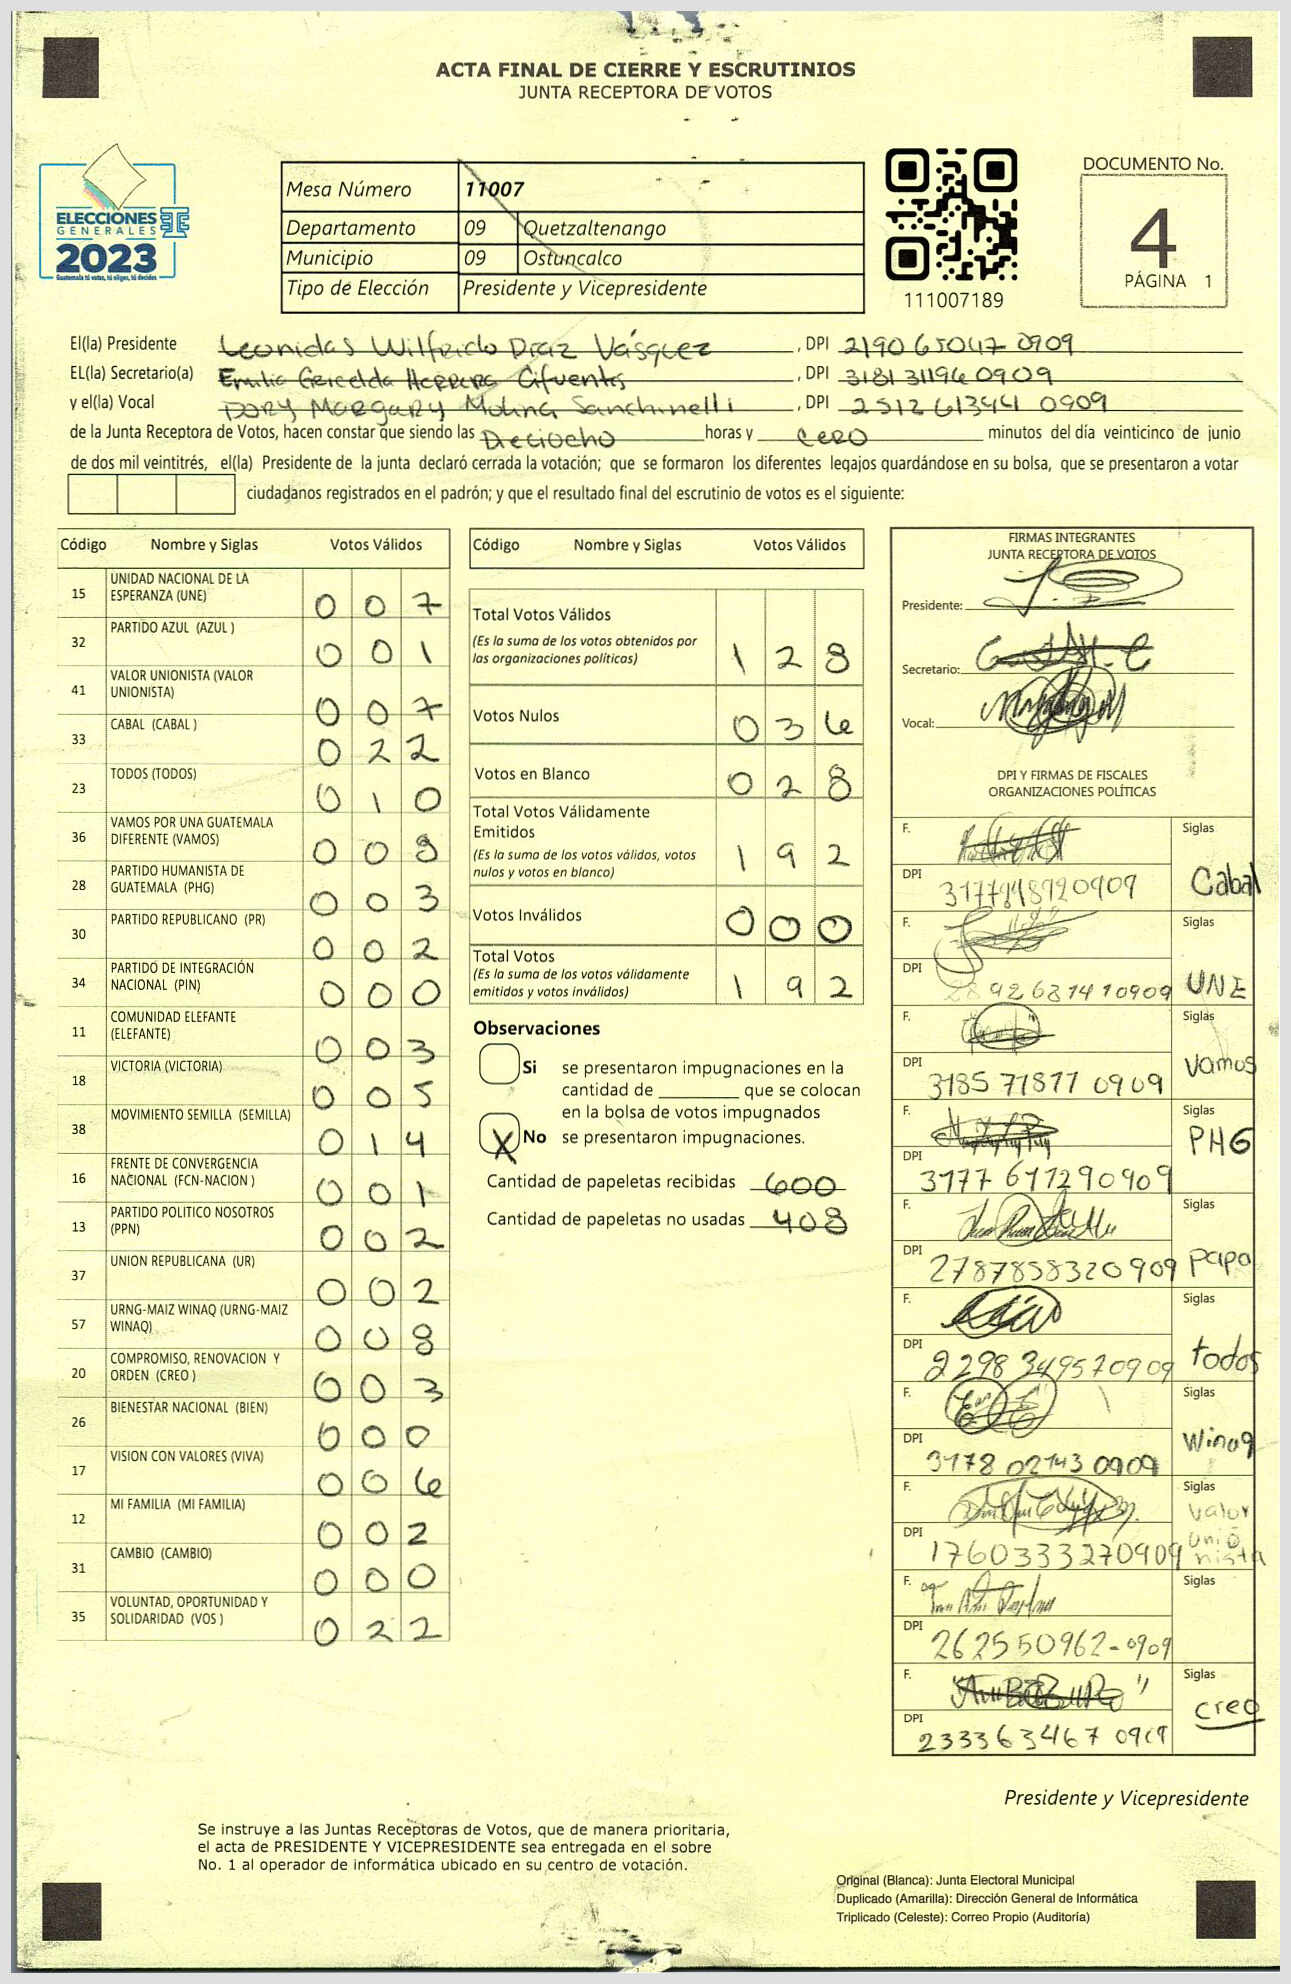 ACTA FINAL DE CIERRE Y ESCRUTINIOS
JUNTA RECEPTORA DE VOTOS
ELECCIONES
GENERALES
2023
Guatemala tú votas, tú eliges, tú decides
Mesa Número 11007
Departamento 09 Quetzaltenango
Municipio 09 Ostuncalco
Tipo de Elección Presidente y Vicepresidente
111007189
DOCUMENTO No.
4
PÁGINA 1
El(la) Presidente Leonidas Wilfrido Díaz Vásquez, DPI 2190 65047 0909
EL(la) Secretario(a) Emilia Gricelda Herrera Cifuentes, DPI 3181 31196 0909
y el(la) Vocal Dory Margary Molina Sanchinelli, DPI 2512 61344 0909
de la Junta Receptora de Votos, hacen constar que siendo las Dieciocho horas y cero minutos del día veinticinco de junio
de dos mil veintitrés, el(la) Presidente de la junta declaró cerrada la votación; que se formaron los diferentes legajos guardándose en su bolsa, que se presentaron a votar
ciudadanos registrados en el padrón; y que el resultado final del escrutinio de votos es el siguiente:
Código Nombre y Siglas Votos Válidos
15 UNIDAD NACIONAL DE LA ESPERANZA (UNE) 0 0 7
32 PARTIDO AZUL (AZUL ) 0 0 1
41 VALOR UNIONISTA (VALOR UNIONISTA) 0 0 7
33 CABAL (CABAL ) 0 2 2
23 TODOS (TODOS) 0 1 0
36 VAMOS POR UNA GUATEMALA DIFERENTE (VAMOS) 0 0 8
28 PARTIDO HUMANISTA DE GUATEMALA (PHG) 0 0 3
30 PARTIDO REPUBLICANO (PR) 0 0 2
34 PARTIDO DE INTEGRACIÓN NACIONAL (PIN) 0 0 0
11 COMUNIDAD ELEFANTE (ELEFANTE) 0 0 3
18 VICTORIA (VICTORIA) 0 0 5
38 MOVIMIENTO SEMILLA (SEMILLA) 0 1 4
16 FRENTE DE CONVERGENCIA NACIONAL (FCN-NACION ) 0 0 1
13 PARTIDO POLITICO NOSOTROS (PPN) 0 0 2
37 UNION REPUBLICANA (UR) 0 0 2
57 URNG-MAIZ WINAQ (URNG-MAIZ WINAQ) 0 0 8
20 COMPROMISO, RENOVACION Y ORDEN (CREO ) 0 0 3
26 BIENESTAR NACIONAL (BIEN) 0 0 0
17 VISION CON VALORES (VIVA) 0 0 6
12 MI FAMILIA (MI FAMILIA) 0 0 2
31 CAMBIO (CAMBIO) 0 0 0
35 VOLUNTAD, OPORTUNIDAD Y SOLIDARIDAD (VOS ) 0 2 2
Código Nombre y Siglas Votos Válidos
Total Votos Válidos
(Es la suma de los votos obtenidos por
las organizaciones políticas) 1 2 8
Votos Nulos 0 3 6
Votos en Blanco 0 2 8
Total Votos Válidamente
Emitidos
(Es la suma de los votos válidos, votos
nulos y votos en blanco) 1 9 2
Votos Inválidos 0 0 0
Total Votos
(Es la suma de los votos válidamente
emitidos y votos inválidos) 1 9 2
Observaciones
Si se presentaron impugnaciones en la
cantidad de ________ que se colocan
en la bolsa de votos impugnados
X No se presentaron impugnaciones.
Cantidad de papeletas recibidas 600
Cantidad de papeletas no usadas 408
FIRMAS INTEGRANTES
JUNTA RECEPTORA DE VOTOS
Presidente:
Secretario:
Vocal:
DPI Y FIRMAS DE FISCALES
ORGANIZACIONES POLÍTICAS
F. Siglas
DPI Cabal
F. Siglas
DPI 2892681410909 UNE
F. Siglas
DPI 3185 71877 0909 Vamos
F. Siglas
DPI 3177 677290909 PHG
F. Siglas
DPI 2787858320909 papa
F. Siglas
DPI 2298 349570909 todos
F. Siglas
DPI 3178 02143 0909 Winaq
F. Siglas
DPI 1760333270909 Valor unio nista
F. Siglas
DPI 262550962-0909
F. Siglas
DPI 233363467 0909 creo
Presidente y Vicepresidente
Se instruye a las Juntas Receptoras de Votos, que de manera prioritaria,
el acta de PRESIDENTE Y VICEPRESIDENTE sea entregada en el sobre
No. 1 al operador de informática ubicado en su centro de votación.
Original (Blanca): Junta Electoral Municipal
Duplicado (Amarilla): Dirección General de Informática
Triplicado (Celeste): Correo Propio (Auditoría)